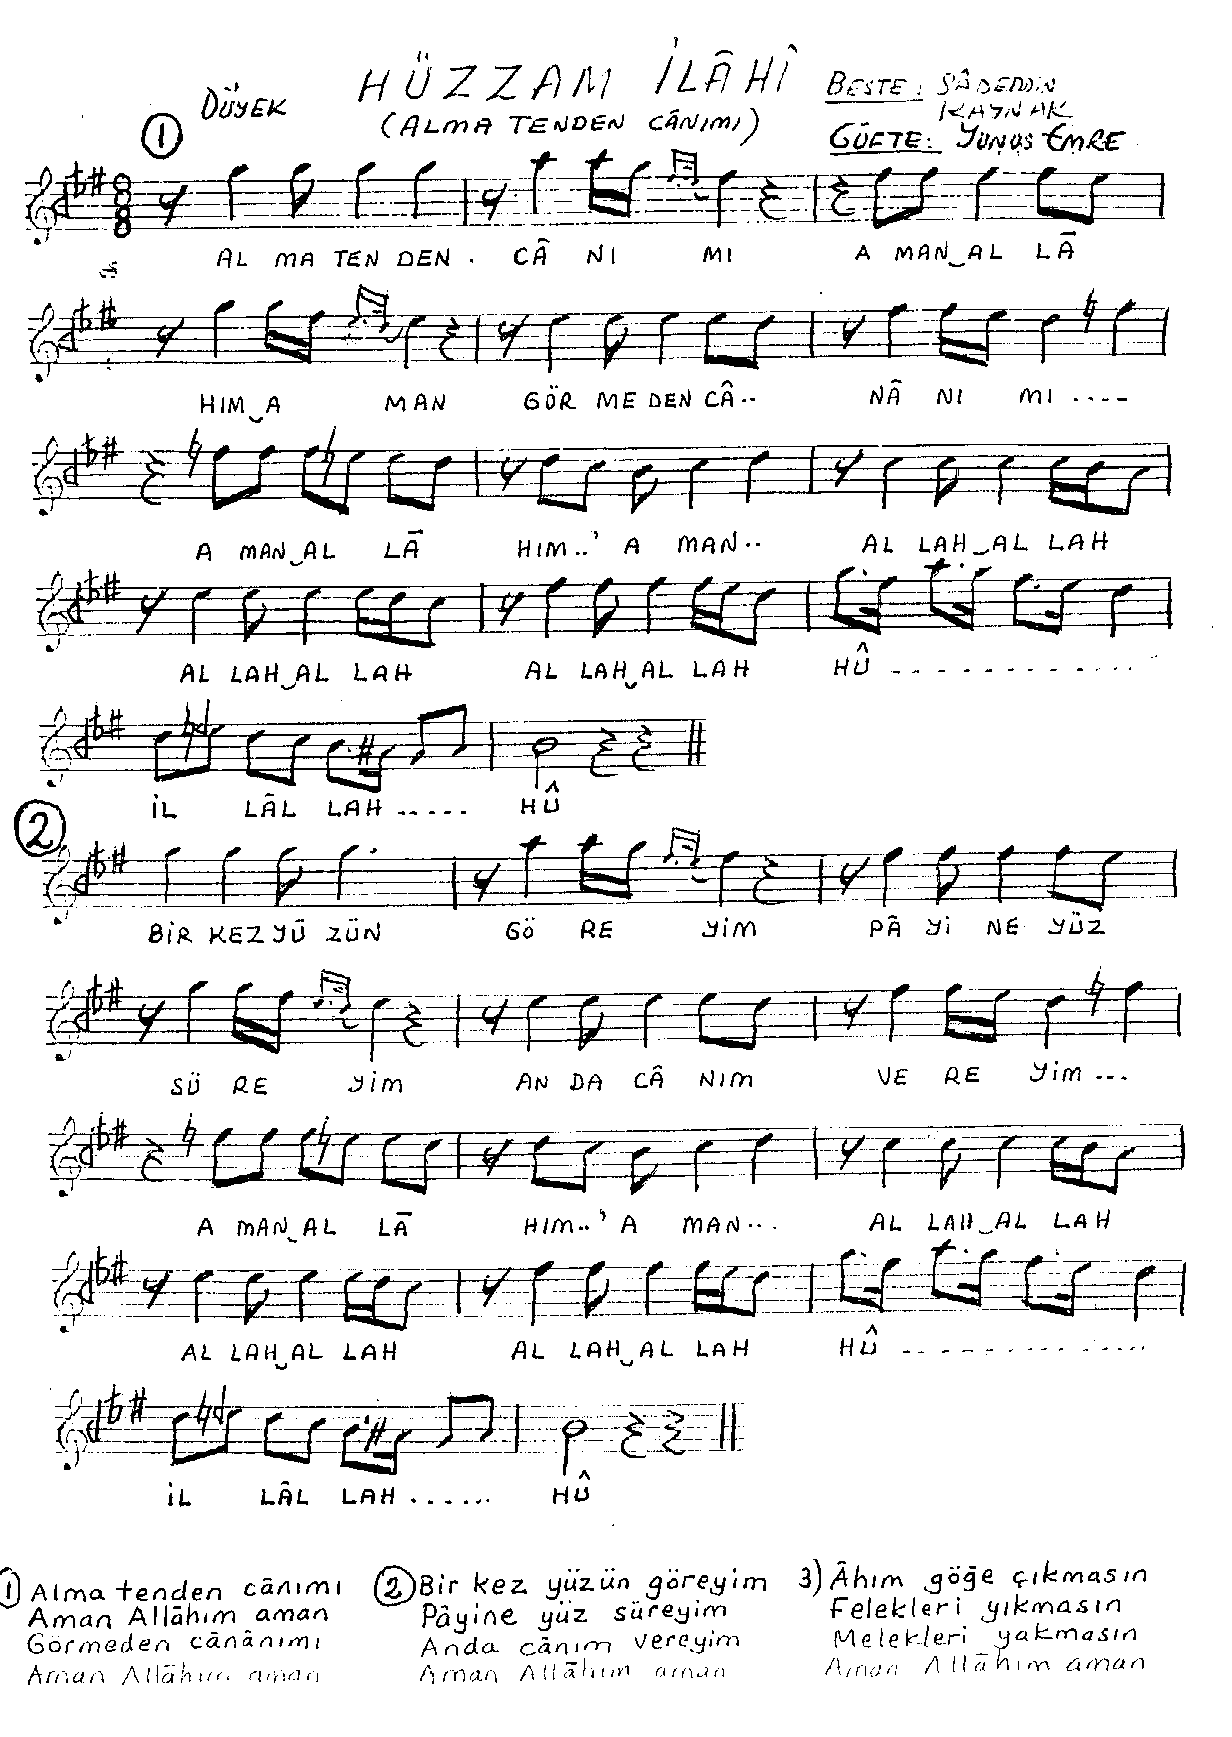 HÜZZAM İLÂHÎ
(ALMA TENDEN CÂNIMI)
DÜYEK
BESTE: SÂDEDDİN
KAYNAK
GÜFTE: YUNUS EMRE
1
8
8
AL MA TEN DEN . CÂ NI MI A MAN‿AL LĀ
HIM‿A MAN GÖR ME DEN CÂ.. NÂ NI MI ....
A MAN‿AL LĀ HIM..' A MAN.. AL LAH‿AL LAH
AL LAH‿AL LAH AL LAH‿AL LAH HÛ ............
İL LÂL LAH ..... HÛ
2
BİR KEZ YÜ ZÜN GÖ RE YİM PÂ Yİ NE YÜZ
SÜ RE YİM AN DA CÂ NIM VE RE YİM ...
A MAN‿AL LĀ HIM..' A MAN... AL LAH‿AL LAH
AL LAH‿AL LAH AL LAH‿AL LAH HÛ .............
İL LÂL LAH ...... HÛ
1) Alma tenden cânımı
Aman Allāhım aman
Görmeden cânânımı
Aman Allāhım aman
2) Bir kez yüzün göreyim
Pâyine yüz süreyim
Anda cânım vereyim
Aman Allāhım aman
3) Âhım göğe çıkmasın
Felekleri yıkmasın
Melekleri yakmasın
Aman Allāhım aman